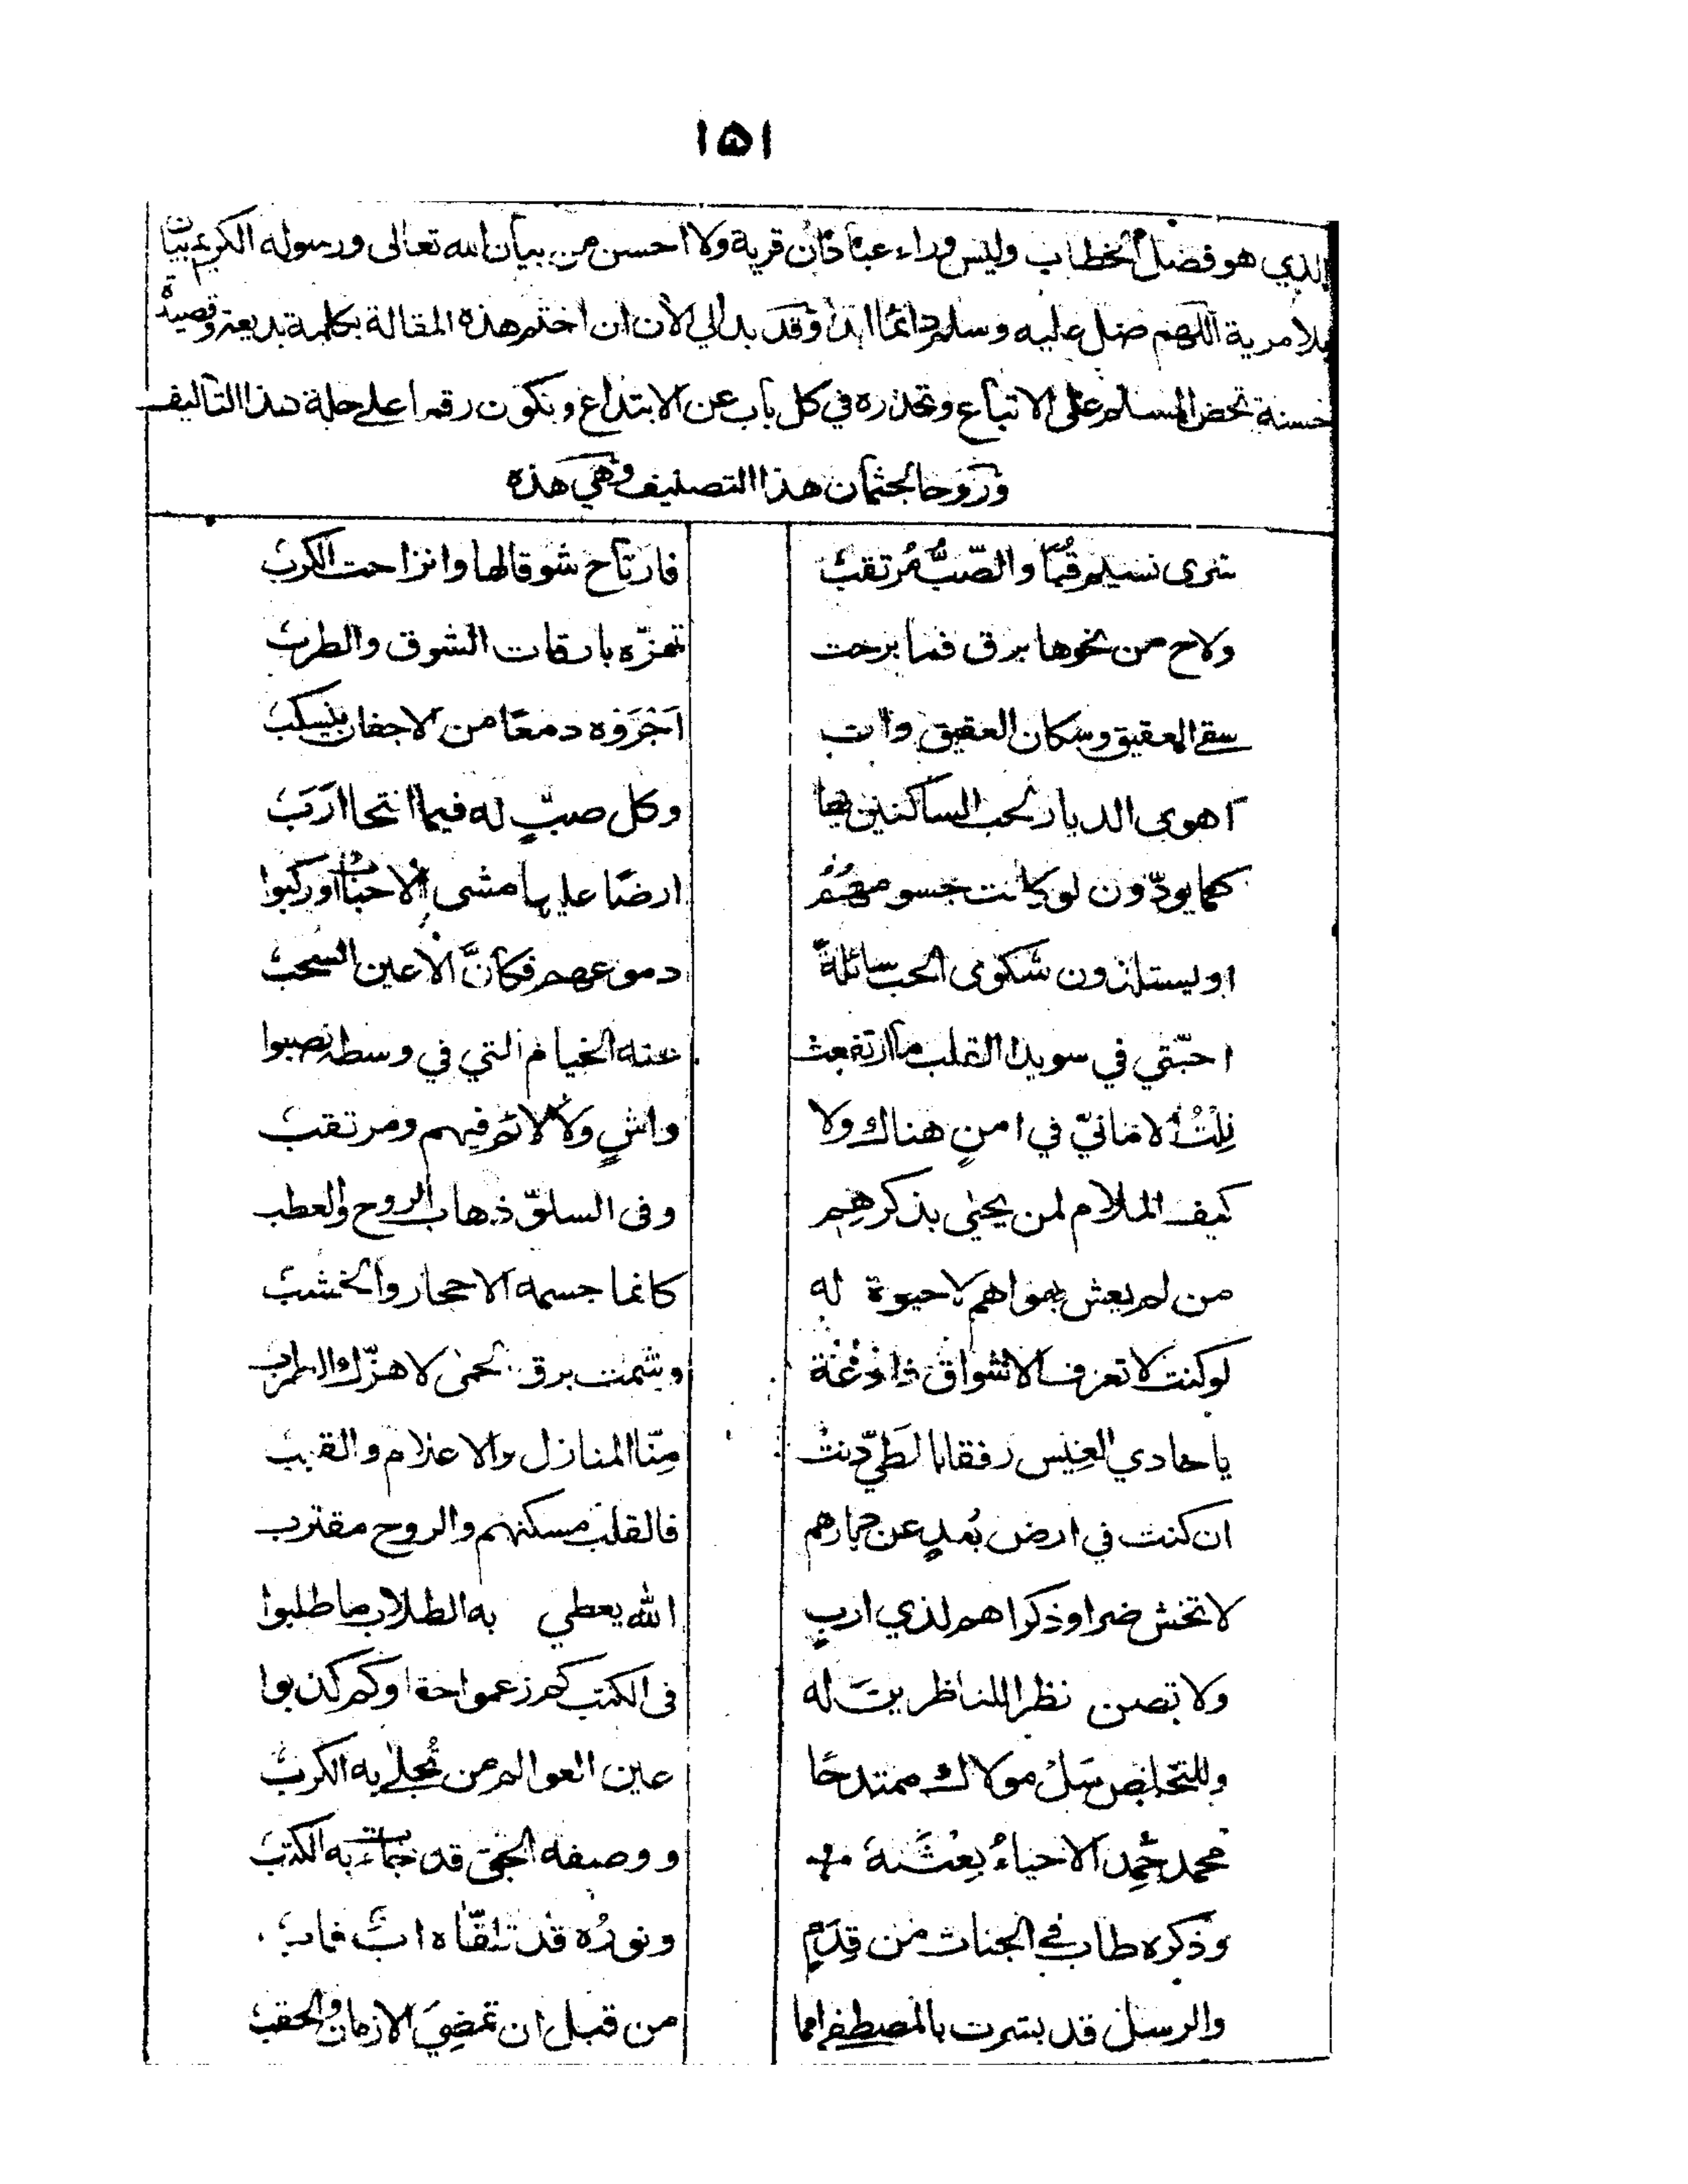 ١٥١
الذي هو فصل الخطاب وليس وراء عبادان قرية ولا احسن من بيان الله تعالى ورسوله الكريم بيان
بلا مرية اللهم صل عليه وسلم دائما ابدا وقد بدالي الآن ان اختم هذه المقالة بكلمة بديعة وقصيدة
حسنة تحض المسلم على الاتباع وتحذره في كل باب عن الابتداع وتكون رقما على حلة هذا التأليف
وروحا لجثمان هذا التصنيف وهي هذه
سرى نسيم قُبًا والصّبُّ مُرتقبُ فارتاح شوقا لها وانزاحت الكربُ
ولاح من نحوها برق فما برحت تهزّه بارقات الشوق والطربُ
سقى العقيق وسكان العقيق وان اَجْرَوْه دمعًا من الاجفان ينسكبُ
اهوى الديار لحب الساكنين بها وكل صبٍّ له فيما انتحا ارَبُ
كما يودّون لو كانت جسومهُمُ ارضًا عليها مشى الاحباب او ركبوا
او يستلذون شكوى الحب سائلةً دموعهم فكانَّ الأعين السحبُ
احبّتي في سويدا القلب ما ارتفعتْ عنه الخيام التي في وسطه نصبوا
نِلْتُ الامانيّ في امنٍ هناك ولا واشٍ ولا لائم فيهم ومرتقبُ
كيف الملام لمن يحيى بذكرهِم وفى السلوّ ذهاب الروح والعطب
من لم يعش بهواهم لا حيوة له كانما جسمه الاحجار والخشبُ
لو كنت لا تعرف الاشواق ذا وشمت برق الحمى لا هزّك الطرب
يا حادي العِيْس رفقا بالمَطيّ دنتْ مِنّا المنازل والاعلام والقببُ
ان كنت في ارض بُعدٍ عن ديارهم فالقلب مسكنهم والروح مقترب
لا تخش ضرا وذكراهم لذي اربٍ الله يعطي به الطلاب ما طلبوا
ولا تصن نظرا للناظرين له فى الكتب كم زعموا حقا وكم كذبوا
وللتخليص سَلْ مولاك ممتدحًا عين العوالم من تُجلى به الكربُ
محمد حُمِد الاحياءُ بِعْثَتهَ ووصفه الحق قد جاءت به الكتبُ
وذكره طاب في الجنات من قِدَمٍ ونورُه قد تلقّاه ابٌ فابُ
والرسل قد بشرت بالمصطفى امما من قبل ان تمضِيَ الازمان والحقبُ